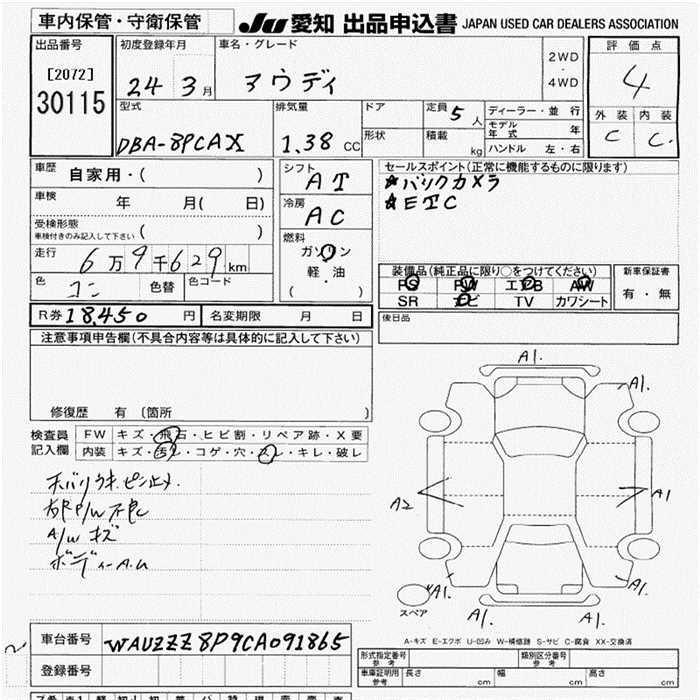 車内保管・守衛保管
JU 愛知 出品申込書 JAPAN USED CAR DEALERS ASSOCIATION
出品番号
[2072]
30115
初度登録年月
24 3月
車名・グレード
アウディ
2WD
・
4WD
評価点
4
外装 内装
C C
型式
DBA-8PCAX
排気量
1.38 CC
ドア
形状
定員 5人
積載 kg
ディーラー・並行
モデル年式 年
ハンドル 左・右
車歴 自家用・( )
車検 年 月( 日)
受検形態
車検付きのみ記入して下さい ( )
走行 6万9千629km
色 コン 色替 色コード
シフト
AT
冷房
AC
燃料
ガソリン
軽・油
( )
セールスポイント(正常に機能するものに限ります)
★バックカメラ
★ETC
装備品(純正品に限り○をつけてください)
PS PW エアB AW
SR ナビ TV カワシート
新車保証書
有・無
R券 18,450 円 名変期限 月 日
後日品
注意事項申告欄(不具合内容等は具体的に記入して下さい)
修復歴 有 (箇所 )
検査員
記入欄
FW キズ・飛石・ヒビ割・リペア跡・X要
内装 キズ・汚レ・コゲ・穴・スレ・キレ・破レ
P/W不良
A/W キズ
ボディーA.U
A1.
A1.
A2
A1
A1.
A1.
A1.
A1.
スペア
A-キズ E-エクボ U-凹み W-補修跡 S-サビ C-腐食 XX-交換済
車台番号 WAUZZZ8P9CA091865
登録番号
形式指定番号 参考 類別区分番号 参考
車庫証明用 参考 長さ cm 幅 cm 高さ cm